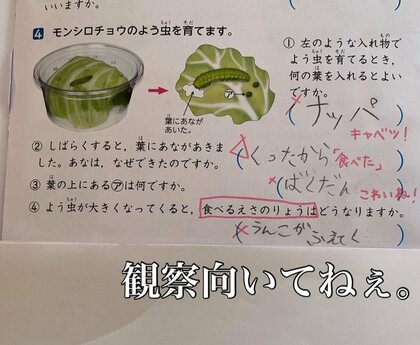 いいますか。
4 モンシロチョウのよう虫を育てます。
葉にあなが
あいた。
㋐
① 左のような入れ物で
よう虫を育てるとき、
何の葉を入れるとよい
ですか。
ナッパ
キャベツ!
② しばらくすると、葉にあながあきま
した。あなは、なぜできたのですか。
くったから
「食べた」
③ 葉の上にある㋐は何ですか。
ばくだん
こわいね!
④ よう虫が大きくなってくると、食べるえさのりょうはどうなりますか。
うんこがふえてく
観察向いてねぇ。